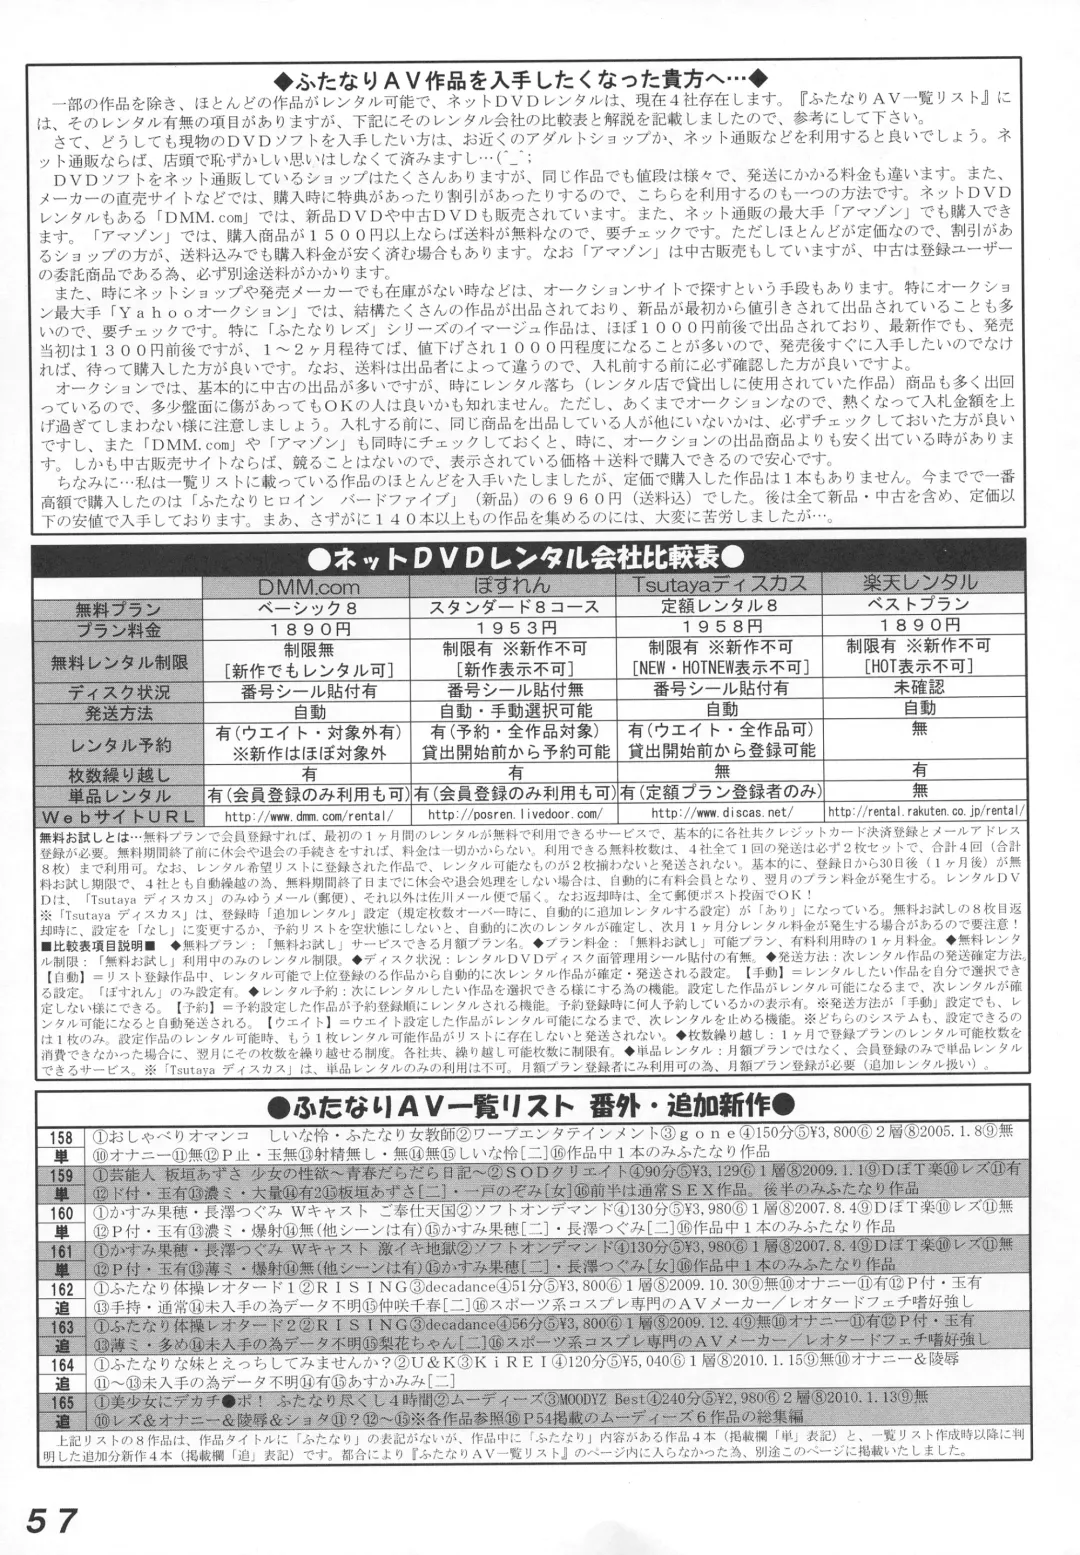 ◆ふたなりＡＶ作品を入手したくなった貴方へ…◆
一部の作品を除き、ほとんどの作品がレンタル可能で、ネットＤＶＤレンタルは、現在４社存在します。『ふたなりＡＶ一覧リスト』に
は、そのレンタル有無の項目がありますが、下記にそのレンタル会社の比較表と解説を記載しましたので、参考にして下さい。
さて、どうしても現物のＤＶＤソフトを入手したい方は、お近くのアダルトショップか、ネット通販などを利用すると良いでしょう。ネ
ット通販ならば、店頭で恥ずかしい思いはしなくて済みますし…(^_^;
ＤＶＤソフトをネット通販しているショップはたくさんありますが、同じ作品でも値段は様々で、発送にかかる料金も違います。また、
メーカーの直売サイトなどでは、購入時に特典があったり割引があったりするので、こちらを利用するのも一つの方法です。ネットＤＶＤ
レンタルもある「DMM.com」では、新品ＤＶＤや中古ＤＶＤも販売されています。また、ネット通販の最大手「アマゾン」でも購入でき
ます。「アマゾン」では、購入商品が１５００円以上ならば送料が無料なので、要チェックです。ただしほとんどが定価なので、割引があ
るショップの方が、送料込みでも購入料金が安く済む場合もあります。なお「アマゾン」は中古販売もしていますが、中古は登録ユーザー
の委託商品である為、必ず別途送料がかかります。
また、時にネットショップや発売メーカーでも在庫がない時などは、オークションサイトで探すという手段もあります。特にオークショ
ン最大手「Ｙａｈｏｏオークション」では、結構たくさんの作品が出品されており、新品が最初から値引きされて出品されていることも多
いので、要チェックです。特に「ふたなりレズ」シリーズのイマージュ作品は、ほぼ１０００円前後で出品されており、最新作でも、発売
当初は１３００円前後ですが、１～２ヶ月程待てば、値下げされ１０００円程度になることが多いので、発売後すぐに入手したいのでなけ
れば、待って購入した方が良いです。なお、送料は出品者によって違うので、入札前する前に必ず確認した方が良いですよ。
オークションでは、基本的に中古の出品が多いですが、時にレンタル落ち（レンタル店で貸出しに使用されていた作品）商品も多く出回
っているので、多少盤面に傷があってもＯＫの人は良いかも知れません。ただし、あくまでオークションなので、熱くなって入札金額を上
げ過ぎてしまわない様に注意しましょう。入札する前に、同じ商品を出品している人が他にいないかは、必ずチェックしておいた方が良い
ですし、また「DMM.com」や「アマゾン」も同時にチェックしておくと、時に、オークションの出品商品よりも安く出ている時がありま
す。しかも中古販売サイトならば、競ることはないので、表示されている価格＋送料で購入できるので安心です。
ちなみに…私は一覧リストに載っている作品のほとんどを入手いたしましたが、定価で購入した作品は１本もありません。今までで一番
高額で購入したのは「ふたなりヒロイン　バードファイブ」（新品）の６９６０円（送料込）でした。後は全て新品・中古を含め、定価以
下の安値で入手しております。まあ、さすがに１４０本以上もの作品を集めるのには、大変に苦労しましたが…。
●ネットＤＶＤレンタル会社比較表●
DMM.com　ぽすれん　Tsutayaディスカス　楽天レンタル
無料プラン　ベーシック８　スタンダード８コース　定額レンタル８　ベストプラン
プラン料金　１８９０円　１９５３円　１９５８円　１８９０円
無料レンタル制限　制限無　制限有 ※新作不可　制限有 ※新作不可　制限有 ※新作不可
[新作でもレンタル可]　[新作表示不可]　[NEW・HOTNEW表示不可]　[HOT表示不可]
ディスク状況　番号シール貼付有　番号シール貼付無　番号シール貼付有　未確認
発送方法　自動　自動・手動選択可能　自動　自動
レンタル予約　有(ウエイト・対象外有)　有(予約・全作品対象)　有(ウエイト・全作品可)　無
※新作はほぼ対象外　貸出開始前から予約可能　貸出開始前から登録可能
枚数繰り越し　有　有　無　有
単品レンタル　有(会員登録のみ利用も可)　有(会員登録のみ利用も可)　有(定額プラン登録者のみ)　無
ＷｅｂサイトＵＲＬ　http://www.dmm.com/rental/　http://posren.livedoor.com/　http://www.discas.net/　http://rental.rakuten.co.jp/rental/
無料お試しとは…無料プランで会員登録すれば、最初の１ヶ月間のレンタルが無料で利用できるサービスで、基本的に各社共クレジットカード決済登録とメールアドレス
登録が必要。無料期間終了前に休会や退会の手続きをすれば、料金は一切かからない。利用できる無料枚数は、４社全て１回の発送は必ず２枚セットで、合計４回（合計
８枚）まで利用可。なお、レンタル希望リストに登録された作品で、レンタル可能なものが２枚揃わないと発送されない。基本的に、登録日から30日後（１ヶ月後）が無
料お試し期限で、４社とも自動継続の為、無料期間終了日までに休会や退会処理をしない場合は、自動的に有料会員となり、翌月のプラン料金が発生する。レンタルＤＶ
Ｄは、「Tsutaya ディスカス」のみゆうメール(郵便)、それ以外は佐川メール便で届く。なお返却時は、全て郵便ポスト投函でＯＫ！
※「Tsutaya ディスカス」は、登録時「追加レンタル」設定（規定枚数オーバー時に、自動的に追加レンタルする設定）が「あり」になっている。無料お試しの８枚目返
却時に、設定を「なし」に変更するか、予約リストを空状態にしないと、自動的に次のレンタルが確定し、次月１ヶ月分レンタル料金が発生する場合があるので要注意！
■比較表項目説明■　◆無料プラン：「無料お試し」サービスできる月額プラン名。◆プラン料金：「無料お試し」可能プラン、有料利用時の１ヶ月料金。◆無料レンタ
ル制限：「無料お試し」利用中のみのレンタル制限。◆ディスク状況：レンタルＤＶＤディスク面管理用シール貼付の有無。◆発送方法：次レンタル作品の発送確定方法。
【自動】＝リスト登録作品中、レンタル可能で上位登録のる作品から自動的に次レンタル作品が確定・発送される設定。【手動】＝レンタルしたい作品を自分で選択でき
る設定。「ぽすれん」のみ設定有。◆レンタル予約：次にレンタルしたい作品を選択できる様にする為の機能。設定した作品がレンタル可能になるまで、次レンタルが確
定しない様にできる。【予約】＝予約設定した作品が予約登録順にレンタルされる機能。予約登録時に何人予約しているかの表示有。※発送方法が「手動」設定でも、レ
ンタル可能になると自動発送される。【ウエイト】＝ウエイト設定した作品がレンタル可能になるまで、次レンタルを止める機能。※どちらのシステムも、設定できるの
は１枚のみ。設定作品のレンタル可能時、もう１枚レンタル可能作品がリストに存在しないと発送されない。◆枚数繰り越し：１ヶ月で登録プランのレンタル可能枚数を
消費できなかった場合に、翌月にその枚数を繰り越せる制度。各社共、繰り越し可能枚数に制限有。◆単品レンタル：月額プランではなく、会員登録のみで単品レンタル
できるサービス。※「Tsutaya ディスカス」は、単品レンタルのみの利用は不可。月額プラン登録者にみ利用可の為、月額プラン登録が必要（追加レンタル扱い）。
●ふたなりＡＶ一覧リスト 番外・追加新作●
158　①おしゃべりオマンコ　しいな怜・ふたなり女教師②ワープエンタテインメント③ｇｏｎｅ④150分⑤¥3,800⑥２層⑧2005.1.8⑨無
単　⑩オナニー⑪無⑫Ｐ止・玉無⑬射精無し・無⑭無⑮しいな怜[二]⑯作品中１本のみふたなり作品
159　①芸能人 板垣あずさ 少女の性欲～青春だらだら日記～②ＳＯＤクリエイト④90分⑤¥3,129⑥１層⑧2009.1.1⑨ＤぽＴ楽⑩レズ⑪有
単　⑫ド付・玉有⑬濃ミ・大量⑭有2⑮板垣あずさ[二]・一戸のぞみ[女]⑯前半は通常ＳＥＸ作品。後半のみふたなり作品
160　①かすみ果穂・長澤つぐみ Ｗキャスト ご奉仕天国②ソフトオンデマンド④130分⑤¥3,980⑥１層⑧2007.8.4⑨ＤぽＴ楽⑩レズ⑪無
単　⑫Ｐ付・玉有⑬濃ミ・爆射⑭無(他シーンは有)⑮かすみ果穂[二]・長澤つぐみ[二]⑯作品中１本のみふたなり作品
161　①かすみ果穂・長澤つぐみ Ｗキャスト 激イキ地獄②ソフトオンデマンド④130分⑤¥3,980⑥１層⑧2007.8.4⑨ＤぽＴ楽⑩レズ⑪無
単　⑫Ｐ付・玉有⑬薄ミ・爆射⑭無(他シーンは有)⑮かすみ果穂[二]・長澤つぐみ[女]⑯作品中１本のみふたなり作品
162　①ふたなり体操レオタード１②ＲＩＳＩＮＧ③decadance④51分⑤¥3,800⑥１層⑧2009.10.30⑨無⑩オナニー⑪有⑫Ｐ付・玉有
追　⑬手持・通常⑭未入手の為データ不明⑮仲咲千春[二]⑯スポーツ系コスプレ専門のＡＶメーカー／レオタードフェチ嗜好強し
163　①ふたなり体操レオタード２②ＲＩＳＩＮＧ③decadance④56分⑤¥3,800⑥１層⑧2009.12.4⑨無⑩オナニー⑪有⑫Ｐ付・玉有
追　⑬薄ミ・多め⑭未入手の為データ不明⑮梨花ちゃん[二]⑯スポーツ系コスプレ専門のＡＶメーカー／レオタードフェチ嗜好強し
164　①ふたなりな妹とえっちしてみませんか？②Ｕ＆Ｋ③ＫｉＲＥＩ④120分⑤¥5,040⑥１層⑧2010.1.15⑨無⑩オナニー＆陵辱
追　⑪～⑬未入手の為データ不明⑭有⑮あすかみみ[二]
165　①美少女にデカチ●ポ！ ふたなり尽くし４時間②ムーディーズ③MOODYZ Best④240分⑤¥2,980⑥２層⑧2010.1.13⑨無
追　⑩レズ＆オナニー＆陵辱＆ショタ⑪？⑫～⑮※各作品参照⑯P54掲載のムーディーズ６作品の総集編
上記リストの８作品は、作品タイトルに「ふたなり」の表記がないが、作品中に「ふたなり」内容がある作品４本（掲載欄「単」表記）と、一覧リスト作成時以降に判
明した追加分新作４本（掲載欄「追」表記）です。都合により『ふたなりＡＶ一覧リスト』のページ内に入らなかった為、別途このページに掲載いたしました。
５７